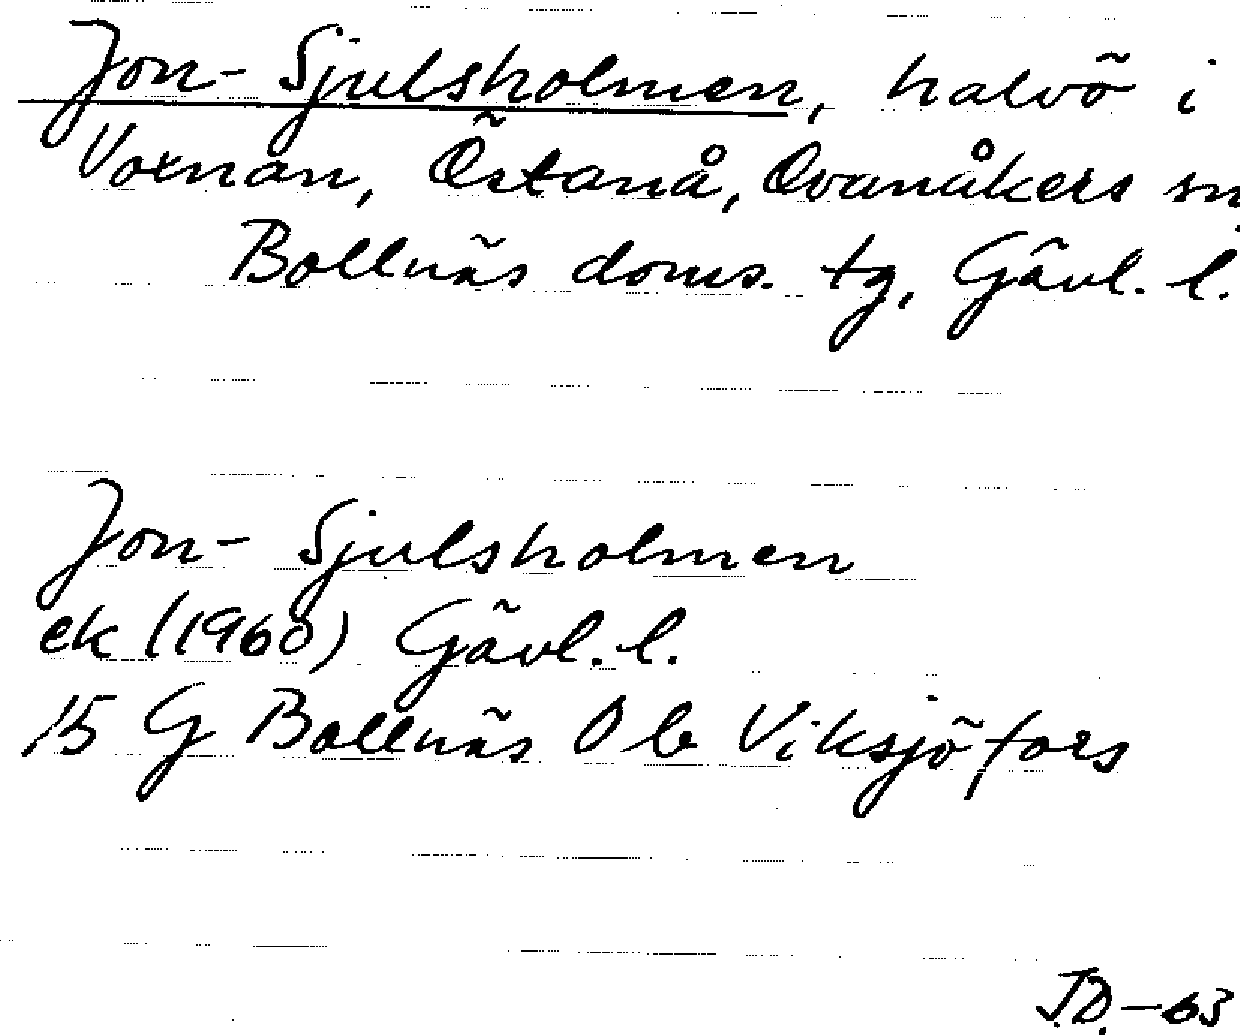 Jon-Sjulsholmen, halvö i
Voxnan, Östanå, Ovanåkers sn,
Bollnäs doms. tg, Gävl. l.
Jon-Sjulsholmen
ek (1960) Gävl. l.
15 G Bollnäs 0 b Viksjöfors
J.D. - 63